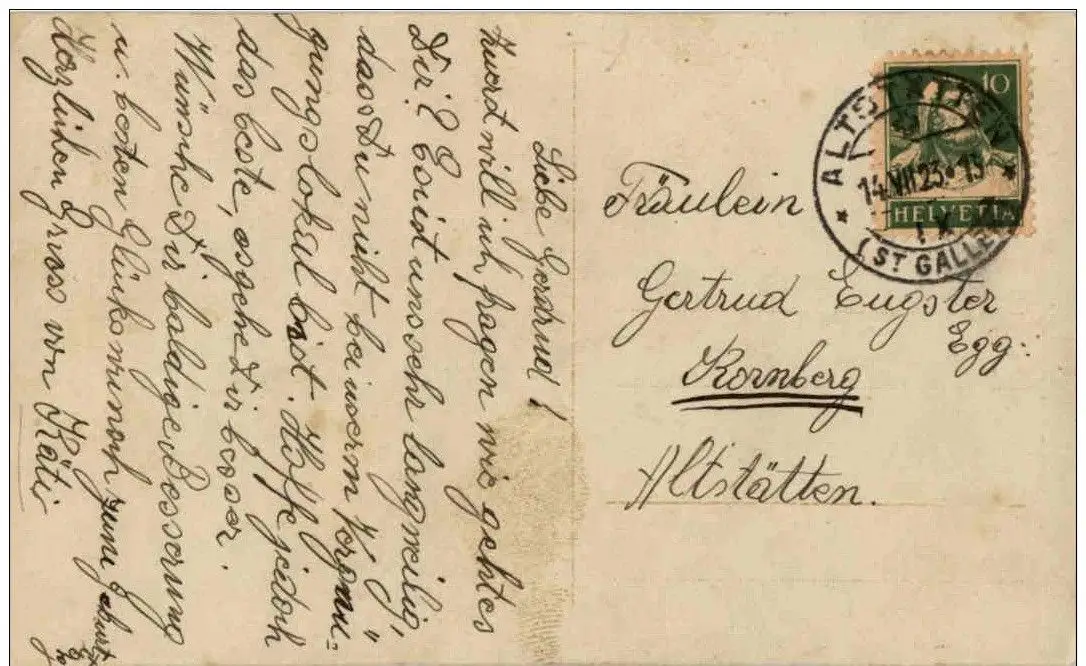 Liebe Gerdrud!
Zuerst will ich fragen wie geht es
Dir? Es ist uns sehr langweilig,
dass Du nicht bei userm Vergnü-
gungslokal bist. Hoffe jedoch
das beste, es gehe Dir besser.
Wünsche Dir baldige Besserung
u. besten Glückwunsch zum Geburtstg
Herzlichen Gruss von Käti
10
HELVETIA
ALTSTÄTTEN
14.VII.23 13
(ST GALLEN)
Fräulein
Gertrud Eugster
Egg.:
Kornberg
Altstätten.